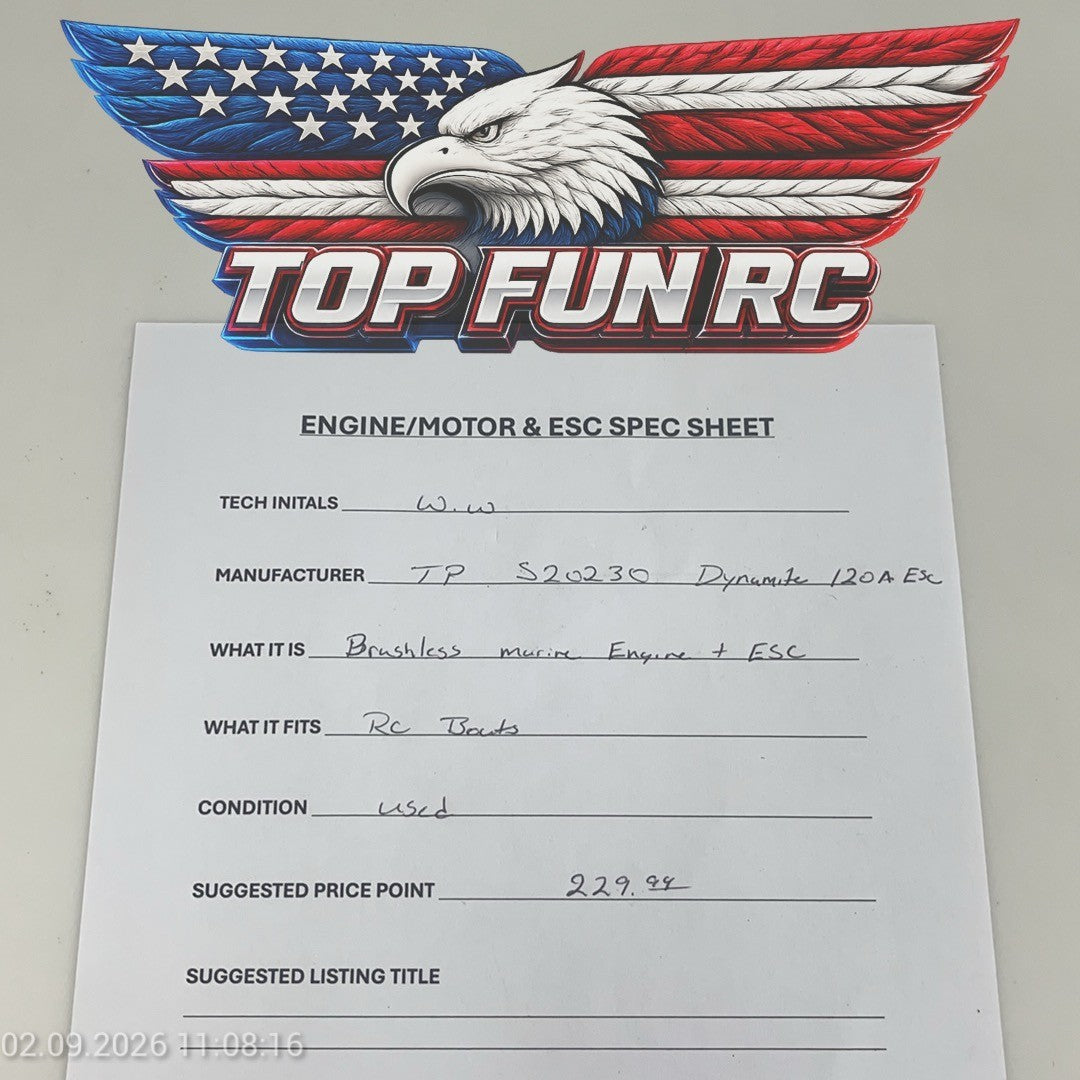 TOP FUN RC
ENGINE/MOTOR & ESC SPEC SHEET
TECH INITALS W.W
MANUFACTURER TP S20230 Dynamite 120A ESC
WHAT IT IS Brushless marine Engine + ESC
WHAT IT FITS RC Boats
CONDITION used
SUGGESTED PRICE POINT 229.99
SUGGESTED LISTING TITLE
02.09.2026 11:08:16